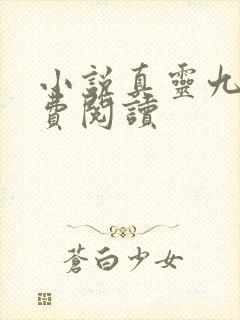 小說真靈九
費閱讀
蒼白少女